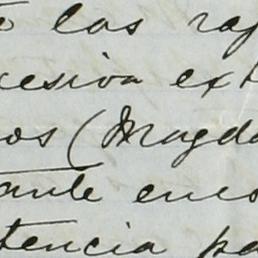 las raj
cesiva ext
os (Magda
ante en
tencia pa